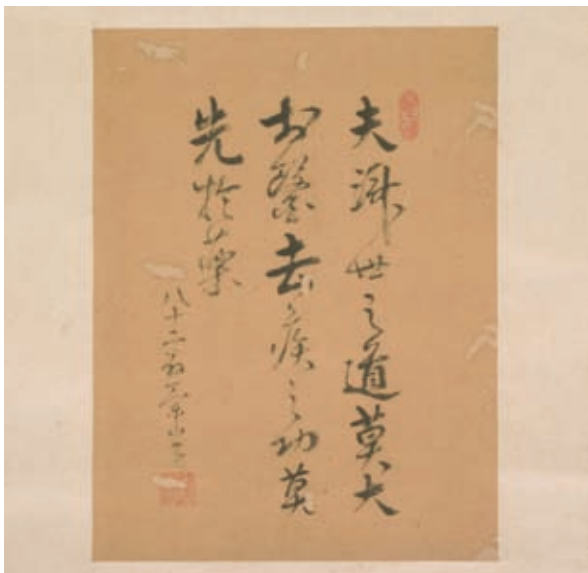 夫済世之道莫大
於醫去疾之功莫
先於藥
八十二翁